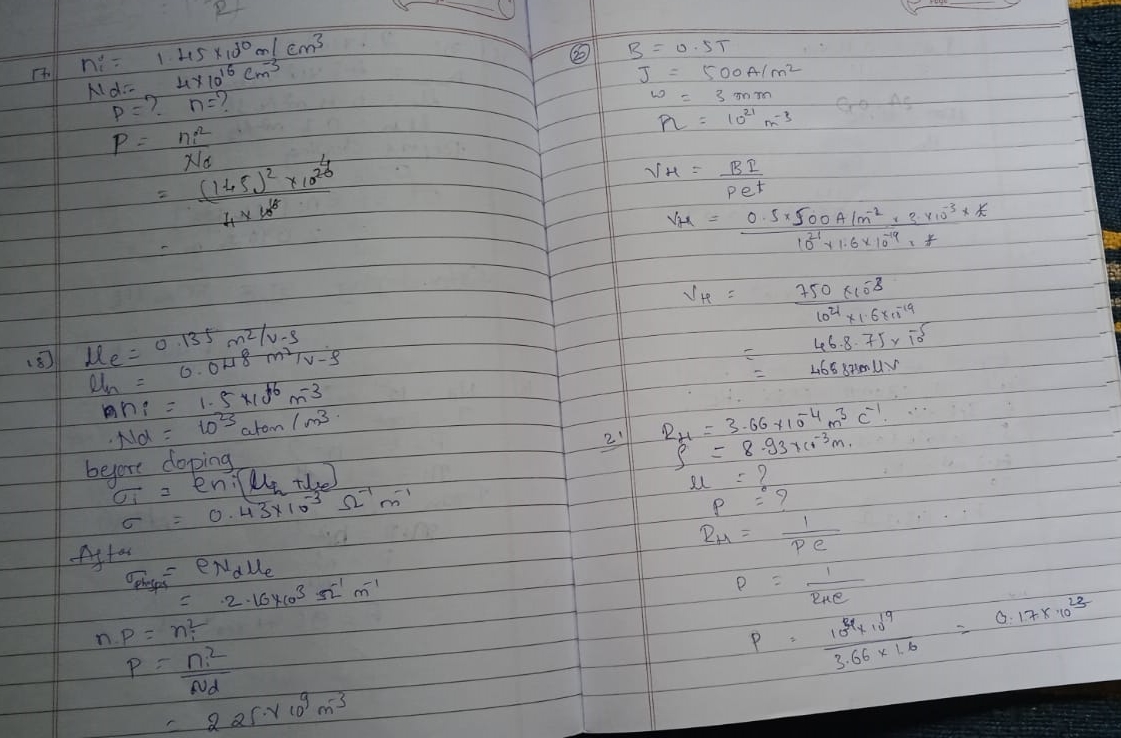 17. ni = 1.45×10^10 m/cm^3
Nd = 4×10^16 cm^-3
P=? n=?
P = ni^2
Nd
= (1.45)^2 × 10^20
4×10^16
=
18) μe = 0.135 m^2/v-s
μh = 0.048 m^2/v-s
ni = 1.5×10^16 m^-3
Nd = 10^23 atom/m^3.
before doping
σi = eni(μh+μe)
σ = 0.43×10^-3 Ω^-1 m^-1
After
= eNdμe
= 2.16×10^3 Ω^-1 m^-1
n.P = ni^2
P = ni^2
Nd
= 2.25×10^9 m^-3
B = 0.5T
J = 500A/m^2
w = 3 mm
n = 10^21 m^-3
VH = BI
Pet
VH = 0.5×500A/m^2 × 3×10^-3 × t
10^21 × 1.6×10^-19 × t
VH = 750×10^-3
10^21×1.6×10^-19
= 468.75×10^-5
=
2! RH = 3.66×10^-4 m^3 c^-1.
ρ = 8.93×10^-3 m.
μ = ?
P = ?
RH = 1
Pe
P = 1
RHe
P =
3.66×1.6
= 0.17×10^23